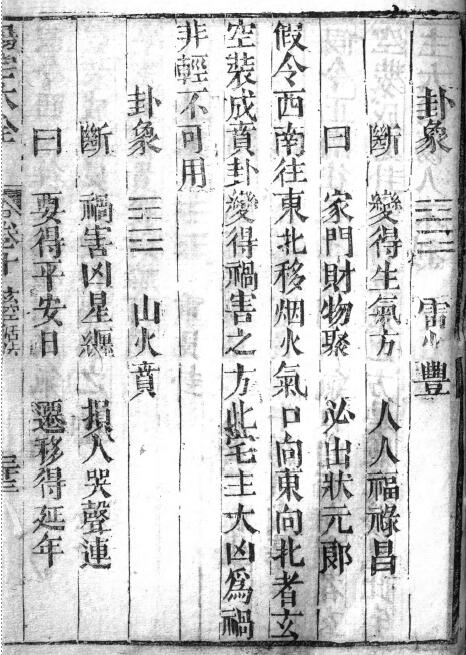 卦象 ䷶ 雷火豐
斷 變得生氣方 人人福祿昌
曰 家門財物聚 必出狀元郎
假令西南往東北移烟火氣口向東向北者玄
空裝成賁卦變得禍害之方此宅主大凶爲禍
非輕不可用
卦象 ䷕ 山火賁
斷 禍害凶星纏 損人哭聲連
曰 要得平安日 遷移得延年
陽宅大全 卷十